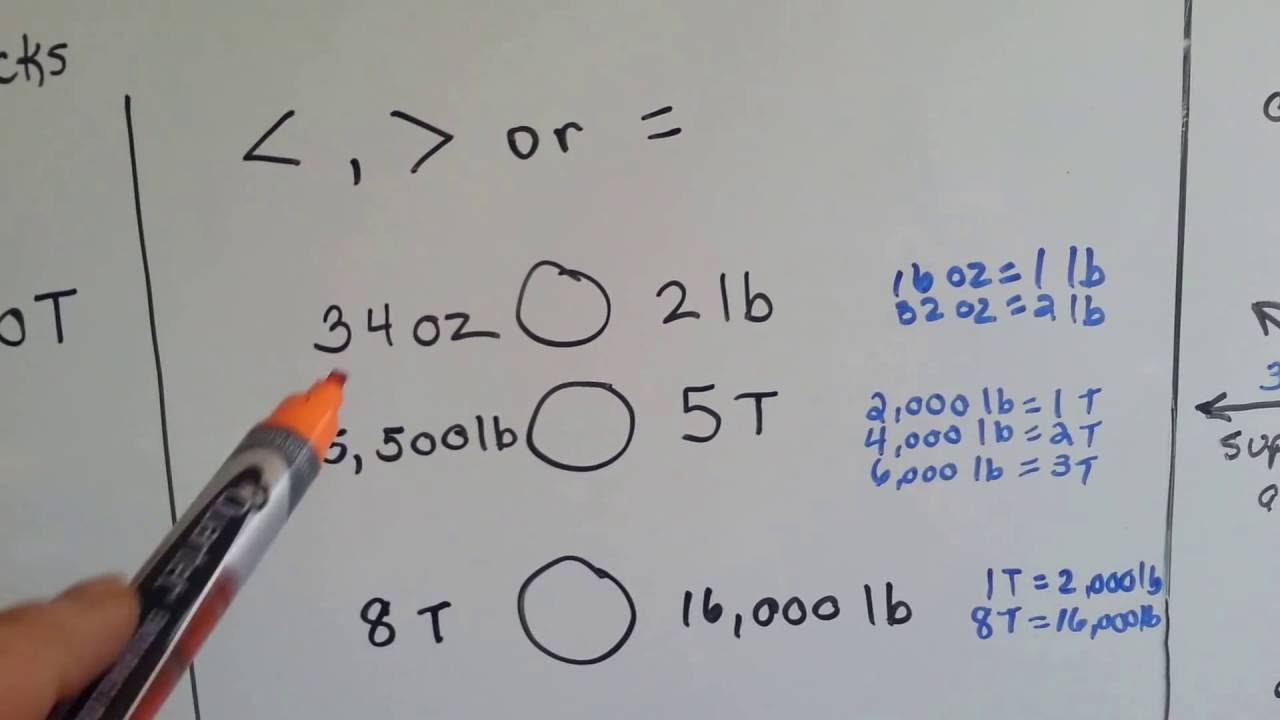 cks
<, > or =
34 oz 2 lb
16 oz = 1 lb
32 oz = 2 lb
oT
5,500 lb 5 T
2,000 lb = 1 T
4,000 lb = 2 T
6,000 lb = 3 T
8 T 16,000 lb
1T = 2,000 lb
8T = 16,000 lb
3
sup